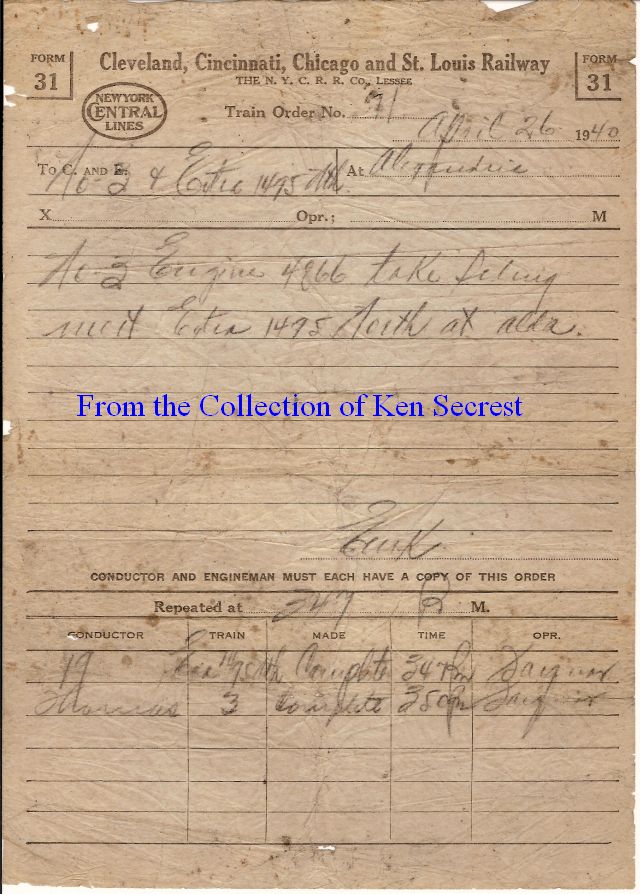 FORM
31
Cleveland, Cincinnati, Chicago and St. Louis Railway
THE N. Y. C. R. R. CO., LESSEE
FORM
31
NEW YORK
CENTRAL
LINES
Train Order No. 71
April 26 1940
TO C. AND E. No-3 & Extra 1495 Nth At Alexandria
X Opr.; M
No-3 Engine 4866 take siding
meet Extra 1495 North at alda.
From the Collection of Ken Secrest
CONDUCTOR AND ENGINEMAN MUST EACH HAVE A COPY OF THIS ORDER
Repeated at 347 P M.
CONDUCTOR TRAIN MADE TIME OPR.
19 Exa 1495 Nth Complete 347 Pm
Thomas 3 Complete 350 Pm